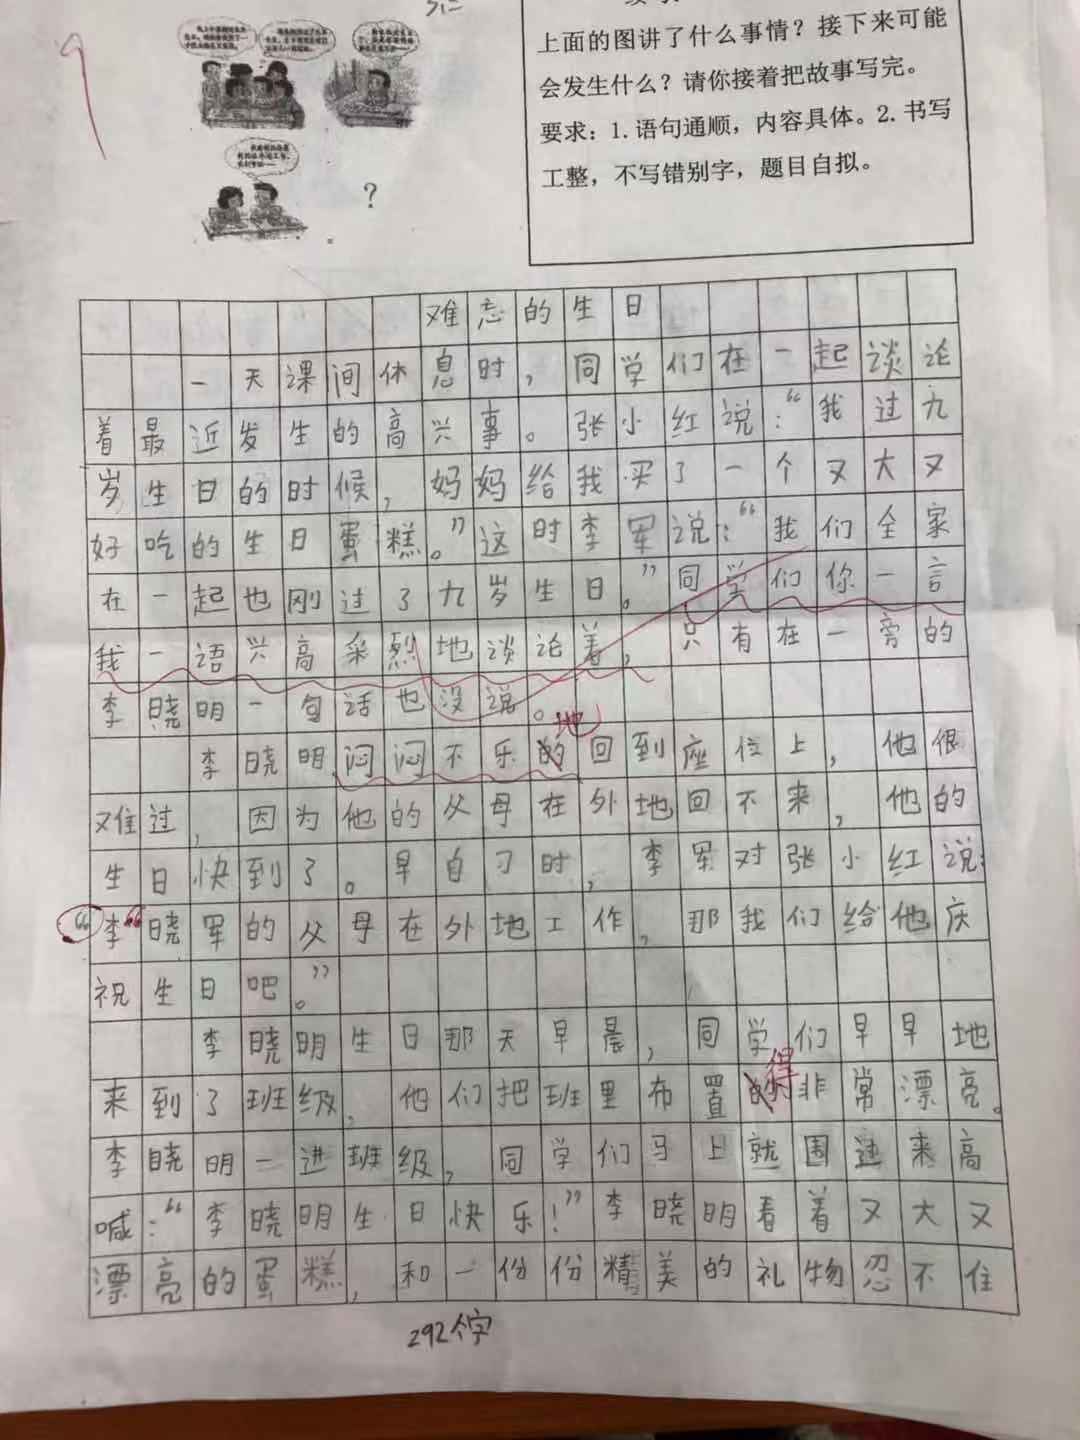 上面的图讲了什么事情？接下来可能
会发生什么？请你接着把故事写完。
要求：1.语句通顺，内容具体。2.书写
工整，不写错别字，题目自拟。
？
难忘的生日
一天课间休息时，同学们在一起谈论
着最近发生的高兴事。张小红说：“我过九
岁生日的时候，妈妈给我买了一个又大又
好吃的生日蛋糕。”这时李军说：“我们全家
在一起也刚过了九岁生日。”同学们你一言
我一语兴高采烈地谈论着，只有在一旁的
李晓明一句话也没说。
李晓明闷闷不乐的回到座位上，他很
地
难过，因为他的父母在外地回不来，他的
生日快到了。早自习时，李军对张小红说：
“李晓军的父母在外地工作，那我们给他庆
祝生日吧。”
李晓明生日那天早晨，同学们早早地
得
来到了班级，他们把班里布置的非常漂亮。
李晓明一进班级，同学们马上就围过来高
喊：“李晓明生日快乐！”李晓明看着又大又
漂亮的蛋糕，和一份份精美的礼物忍不住
292个字